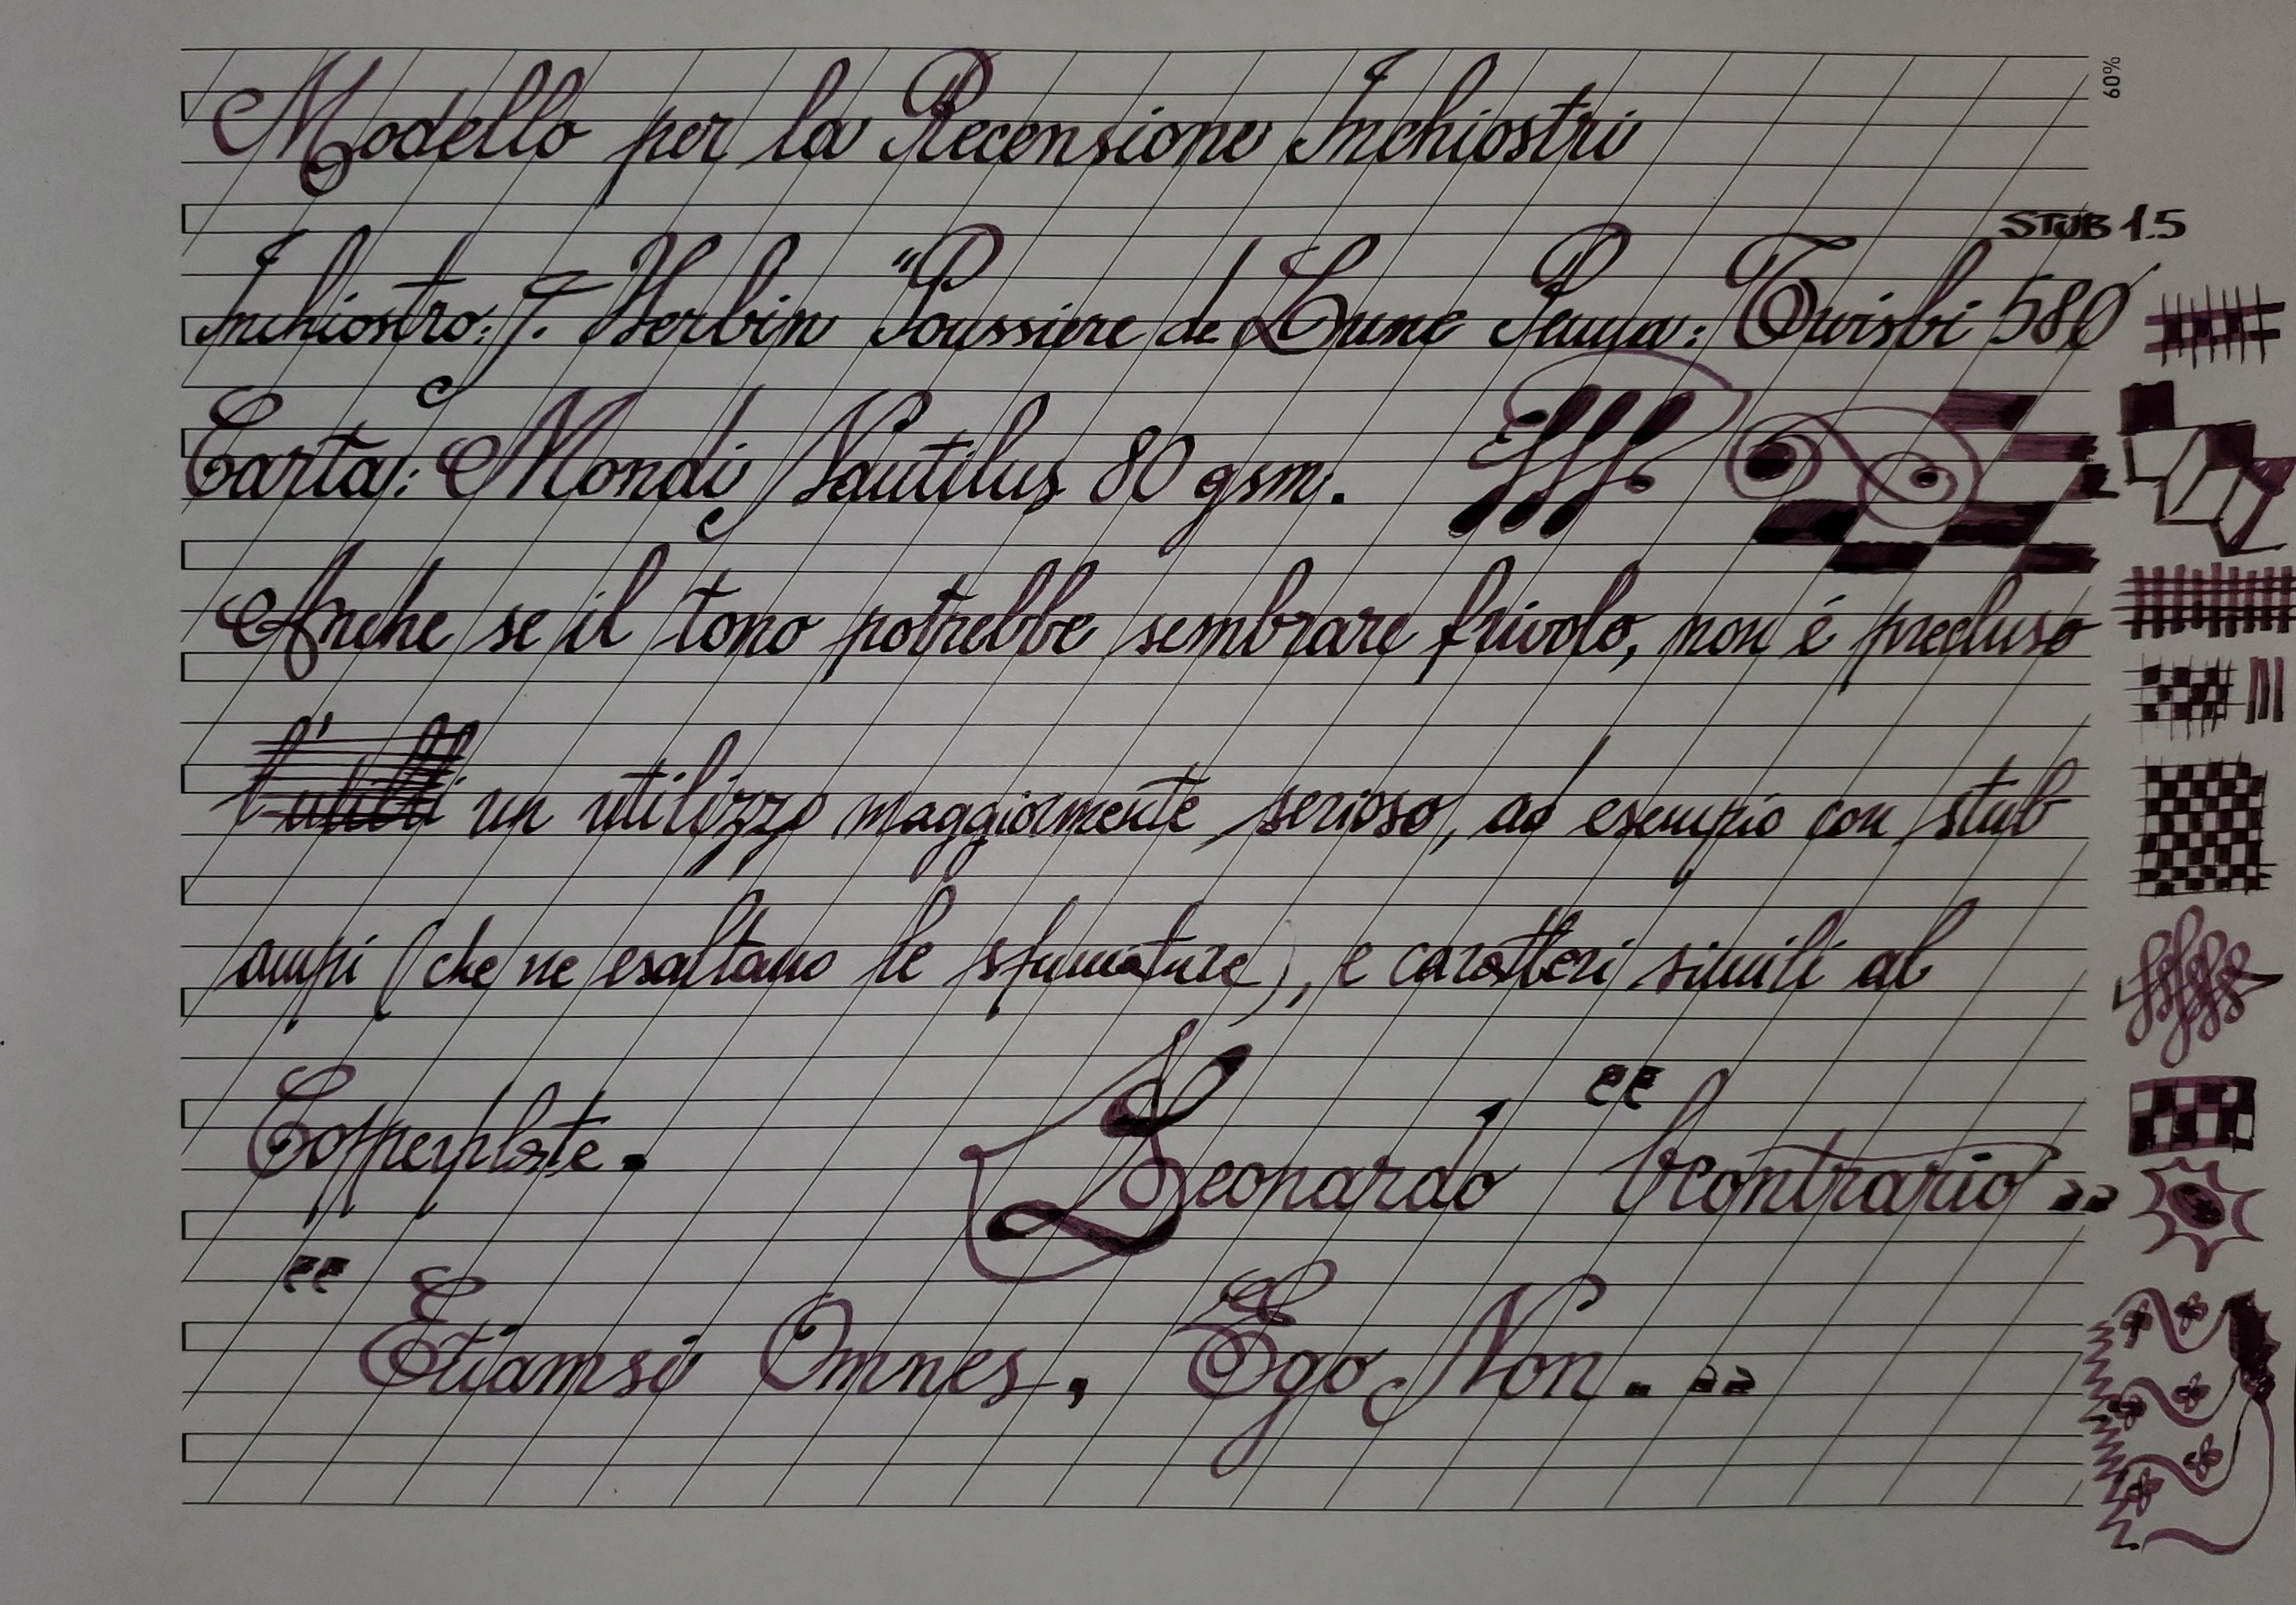 60%
Modello per la Recensione Inchiostri
STUB 1.5
Inchiostro: J. Herbin "Poussiere de Lune Penna: Twisbi 580
Carta: Mondi Nautilus 80 gsm.
Anche se il tono potrebbe sembrare frivolo, non é precluso
un utilizzo maggiormente serioso, ad esempio con stub
ampi (che ne esaltano le sfumature), e caratteri simili al
Copperplate.
Leonardo "bcontrario"
"Etiamsi Omnes, Ego Non."